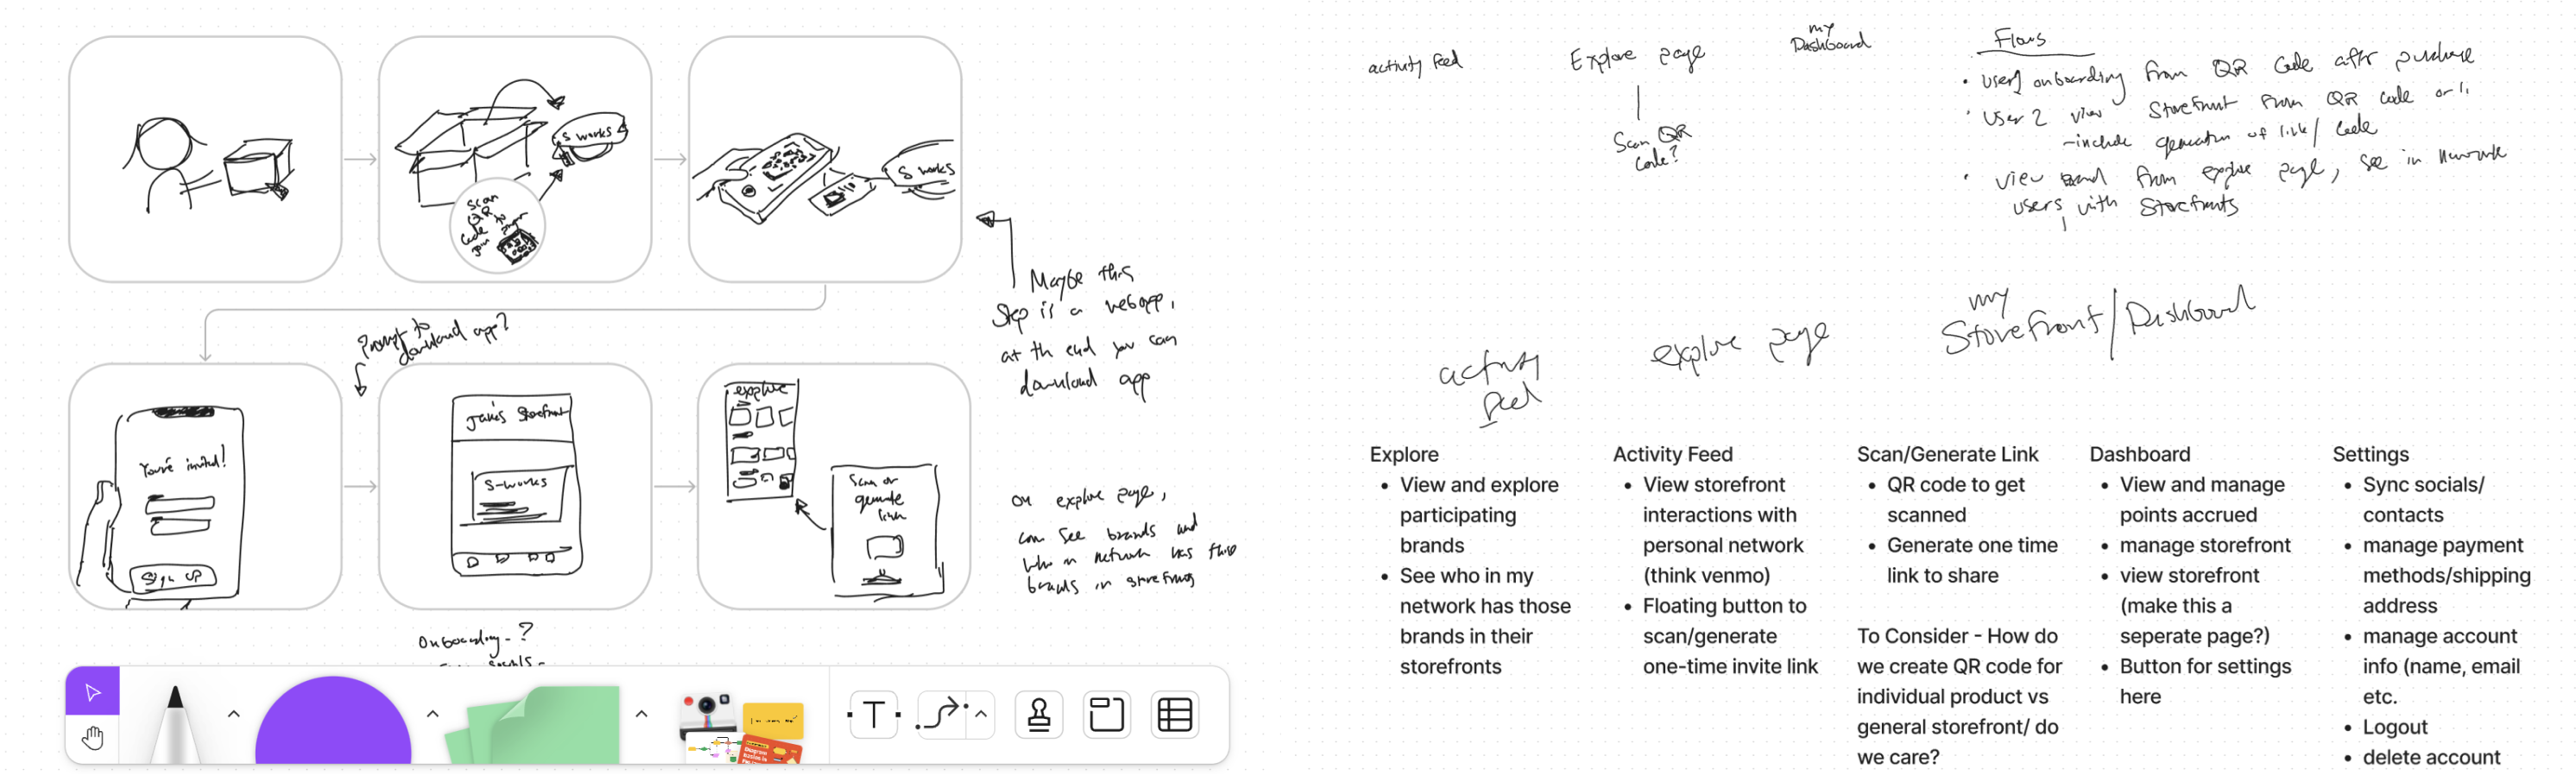 S works
Scan
QR
Code to
join
S works
Maybe this
Step is a webapp,
at the end you can
download app
Prompt to
download app?
You're invited!
Sign up
Jane's Storefront
S-works
explore
Scan or
generate
link
on explore page,
can see brands and
who in network has this
brands in storefronts
Onboarding-?
T
activity feed
Explore page
Scan QR
Code?
my
Dashboard
Flows
• User1 onboarding from QR Code after purchase
• User 2 view Storefront from QR code or
-include generation of link/ code
• view Brand from explore page, see in network
users with Storefronts
activity
feed
explore page
my
Storefront/Dashboard
Explore
• View and explore
participating
brands
• See who in my
network has those
brands in their
storefronts
Activity Feed
• View storefront
interactions with
personal network
(think venmo)
• Floating button to
scan/generate
one-time invite link
Scan/Generate Link
• QR code to get
scanned
• Generate one time
link to share
To Consider - How do
we create QR code for
individual product vs
general storefront/ do
we care?
Dashboard
• View and manage
points accrued
• manage storefront
• view storefront
(make this a
seperate page?)
• Button for settings
here
Settings
• Sync socials/
contacts
• manage payment
methods/shipping
address
• manage account
info (name, email
etc.
• Logout
• delete account